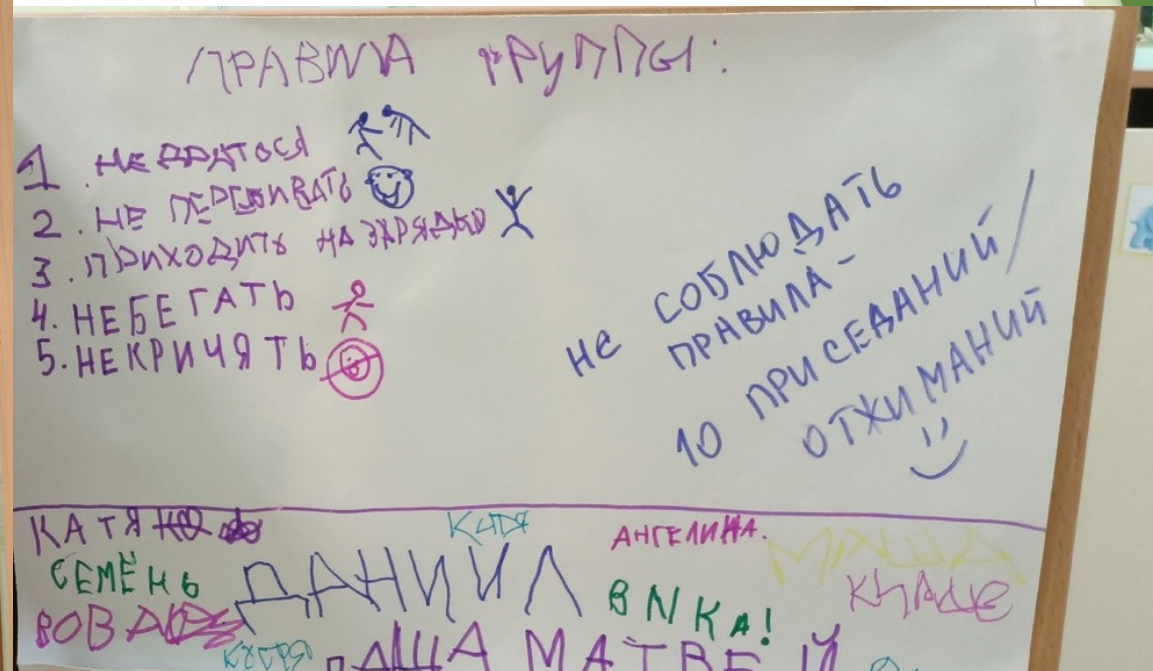 ПРАВИЛА ГРУППЫ:
1. НЕ ДРАТЬСЯ
2. НЕ ПЕРЕБИВАТЬ
3. ПРИХОДИТЬ НА ЗАРЯДКУ
4. НЕБЕГАТЬ
5. НЕКРИЧЯТЬ
НЕ СОБЛЮДАТЬ
ПРАВИЛА -
10 ПРИСЕДАНИЙ/
ОТЖИМАНИЙ
КАТЯ
КАТЯ
АНГЕЛИНА.
МАША
СЕМЁНЬ
ДАНИИЛ
ВИКА!
ВОВА
ДАША МАТВЕЙ